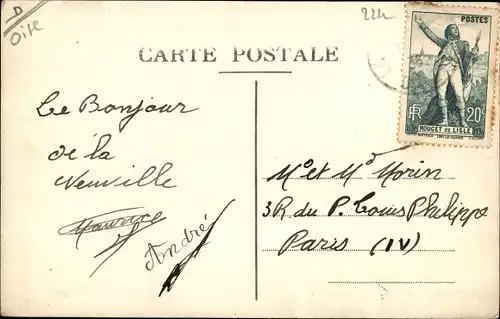 D
Oise
224
CARTE POSTALE
POSTES
RF
20c
ROUGET DE LISLE
Le Bonjour
de la
Neuville
Maurice
André
Mr et Me Morin
3 R. du P. Louis Philippe
Paris (IV)